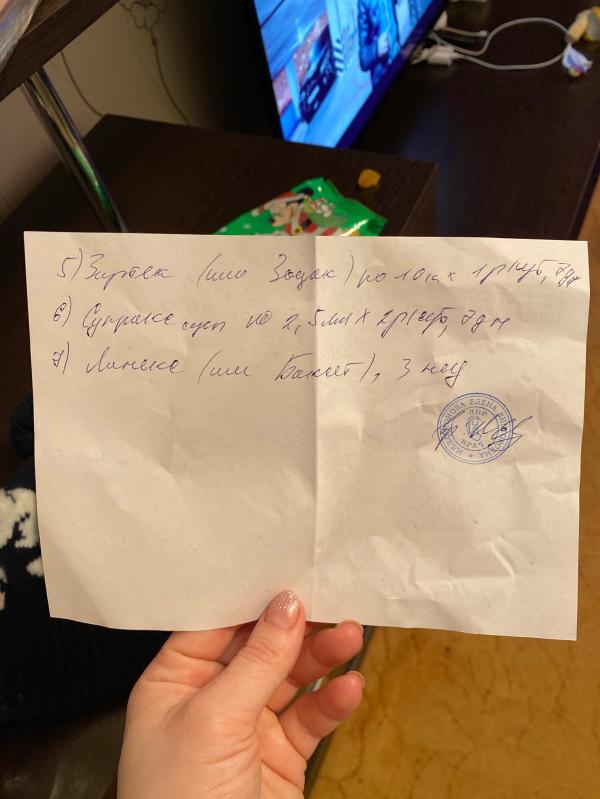 5) Зиртек (или Зодак) по 10 к х 1р/сут, 7дн
6) Супракс сусп по 2,5мл х 2р/сут, 7дн
7) Линекс (или Баксет), 3 нед
ЕЛЕНА
ЛОР
ВРАЧ